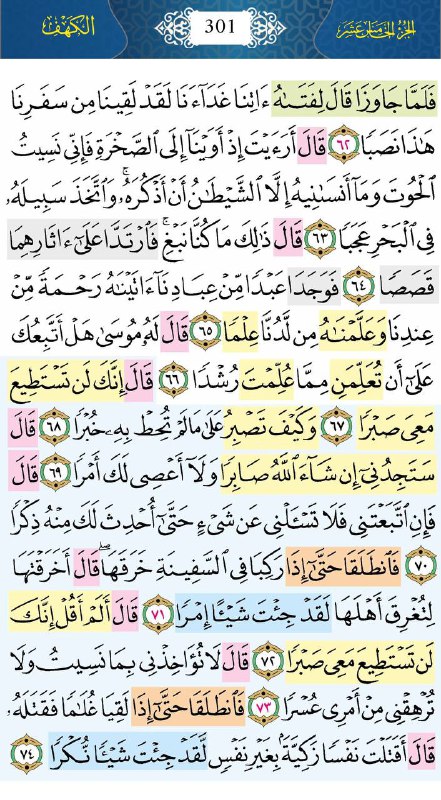 الجزء الخامس عشر 301 الكهف
فَلَمَّا جَاوَزَا قَالَ لِفَتَىٰهُ ءَاتِنَا غَدَآءَنَا لَقَدْ لَقِينَا مِن سَفَرِنَا
هَٰذَا نَصَبًا ٦٢ قَالَ أَرَءَيْتَ إِذْ أَوَيْنَآ إِلَى ٱلصَّخْرَةِ فَإِنِّى نَسِيتُ
ٱلْحُوتَ وَمَآ أَنسَىٰنِيهُ إِلَّا ٱلشَّيْطَٰنُ أَنْ أَذْكُرَهُۥ ۚ وَٱتَّخَذَ سَبِيلَهُۥ
فِى ٱلْبَحْرِ عَجَبًا ٦٣ قَالَ ذَٰلِكَ مَا كُنَّا نَبْغِ ۚ فَٱرْتَدَّا عَلَىٰٓ ءَاثَارِهِمَا
قَصَصًا ٦٤ فَوَجَدَا عَبْدًا مِّنْ عِبَادِنَآ ءَاتَيْنَٰهُ رَحْمَةً مِّنْ
عِندِنَا وَعَلَّمْنَٰهُ مِن لَّدُنَّا عِلْمًا ٦٥ قَالَ لَهُۥ مُوسَىٰ هَلْ أَتَّبِعُكَ
عَلَىٰٓ أَن تُعَلِّمَنِ مِمَّا عُلِّمْتَ رُشْدًا ٦٦ قَالَ إِنَّكَ لَن تَسْتَطِيعَ
مَعِىَ صَبْرًا ٦٧ وَكَيْفَ تَصْبِرُ عَلَىٰ مَا لَمْ تُحِطْ بِهِۦ خُبْرًا ٦٨ قَالَ
سَتَجِدُنِىٓ إِن شَآءَ ٱللَّهُ صَابِرًا وَلَآ أَعْصِى لَكَ أَمْرًا ٦٩ قَالَ
فَإِنِ ٱتَّبَعْتَنِى فَلَا تَسْـَٔلْنِى عَن شَىْءٍ حَتَّىٰٓ أُحْدِثَ لَكَ مِنْهُ ذِكْرًا
٧٠ فَٱنطَلَقَا حَتَّىٰٓ إِذَا رَكِبَا فِى ٱلسَّفِينَةِ خَرَقَهَا ۖ قَالَ أَخَرَقْتَهَا
لِتُغْرِقَ أَهْلَهَا لَقَدْ جِئْتَ شَيْـًٔا إِمْرًا ٧١ قَالَ أَلَمْ أَقُلْ إِنَّكَ
لَن تَسْتَطِيعَ مَعِىَ صَبْرًا ٧٢ قَالَ لَا تُؤَاخِذْنِى بِمَا نَسِيتُ وَلَا
تُرْهِقْنِى مِنْ أَمْرِى عُسْرًا ٧٣ فَٱنطَلَقَا حَتَّىٰٓ إِذَا لَقِيَا غُلَٰمًا فَقَتَلَهُۥ
قَالَ أَقَتَلْتَ نَفْسًا زَكِيَّةًۢ بِغَيْرِ نَفْسٍ لَّقَدْ جِئْتَ شَيْـًٔا نُّكْرًا ٧٤